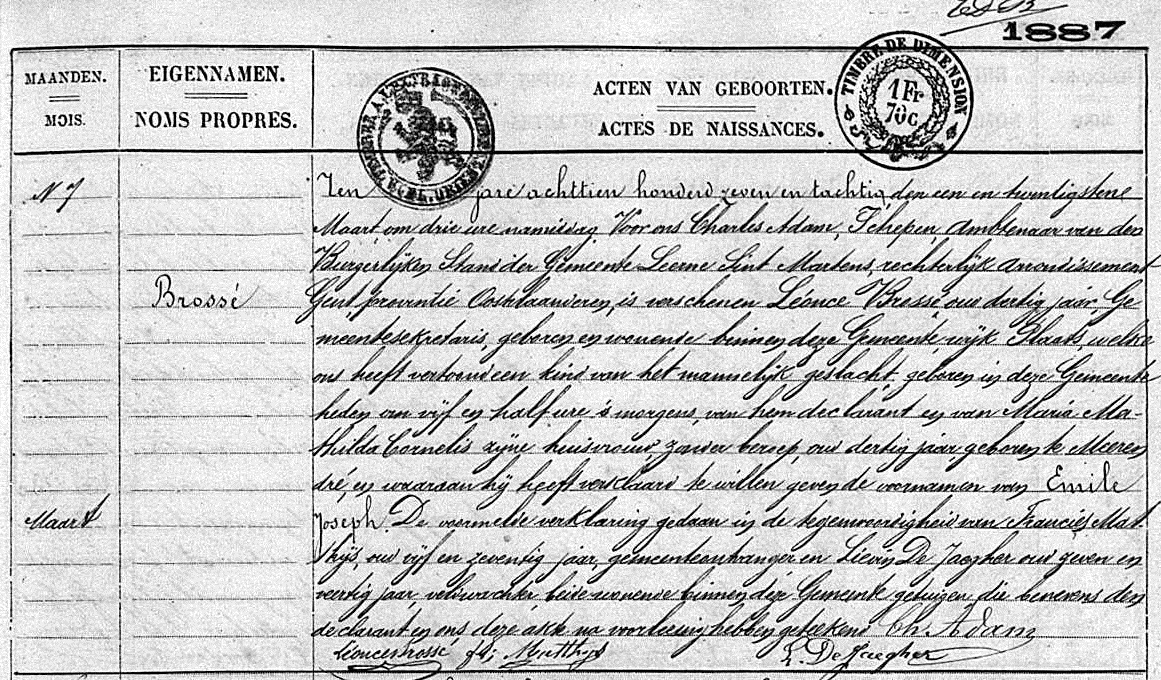 1887
MAANDEN.
MOIS.
EIGENNAMEN.
NOMS PROPRES.
ACTEN VAN GEBOORTEN.
ACTES DE NAISSANCES.
TIMBRE DE DIMENSION
1 Fr
70c
N 7
Brossé
Maart
Ten jare achttien honderd zeven en tachtig, den een en twentigstene
Maart om drie ure namiddag Voor ons Charles Adam, Schepen Ambtenaar van den
Burgerlijken Stand der Gemeente Leerne Sint Martens, rechterlijk arrondissement
Gent, provintie Oostvlaanderen, is verschenen Léonce Brossé oud dertig jaar, Ge
meentesekretaris, geboren en wonende binnen deze Gemeente, wijk Plaats, welke
ons heeft vertoond een kind van het mannelijk geslacht, geboren in deze Gemeente
heden om vijf en half ure 's morgens, van hem declarant en van Maria Ma-
thilda Cornelis zijne huisvrouw, zonder beroep, oud dertig jaar, geboren te Meeren
dré, en waaraan hij heeft verklaard te willen geven de voornamen van Emile
Joseph. De voormelde verklaring gedaan in de tegenwoordigheid van Francies Mat-
thijs, oud vijf en zeventig jaar, gemeenteontvanger en Lievin De Jaegher oud zeven en
veertig jaar, veldwachter, beide wonende binnen deze Gemeente getuigen die benevens den
declarant en ons deze akte na voorlezing hebben geteekend Ch. Adam
Léonce Brossé Matthijs L. De Jaegher